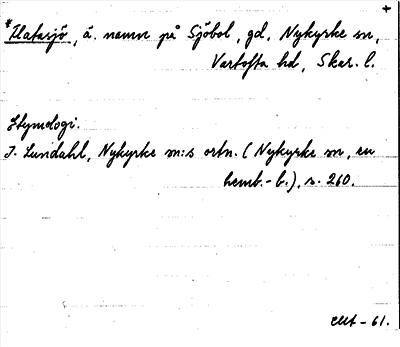 +
*Flatasjö, ä. namn på Sjöbol, gd, Nykyrke sn,
Vartofta hd, Skar. l.
Etymologi.
I. Lundahl, Nykyrke sn:s ortn. (Nykyrke sn, en
hemb.-b.), s. 260.
-61.